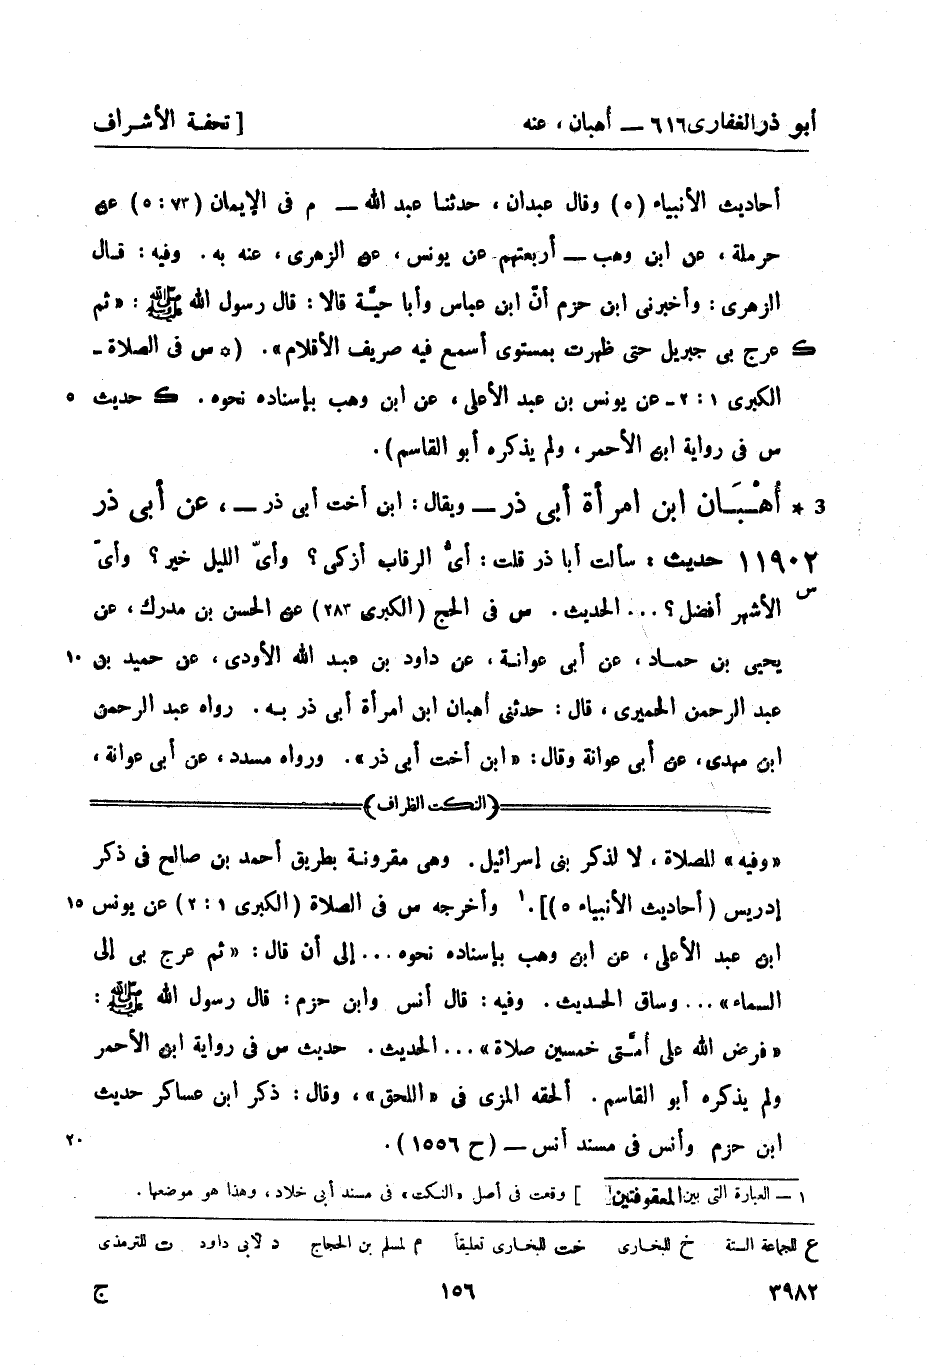 أبو ذر الغفارى ٦١٦ — أهبان ، عنه [ تحفة الأشراف
أحاديث الأنبياء (٥) وقال عبدان ، حدثنا عبد الله — م فى الإيمان (٧٣ : ٥) عن
حرملة ، عن ابن وهب — أربعتهم عن يونس ، عن الزهرى ، عنه به . وفيه : قال
الزهرى : وأخبرنى ابن حزم أنّ ابن عباس وأبا حيَّة قالا : قال رسول الله ﷺ : « ثم
ك عرج بى جبريل حتى ظهرت بمستوى أسمع فيه صريف الأقلام » . (* س فى الصلاة -
الكبرى ١ : ٢ - عن يونس بن عبد الأعلى ، عن ابن وهب بإسناده نحوه . ك حديث ٥
س فى رواية ابن الأحمر ، ولم يذكره أبو القاسم) .
3 * أُهْبَان ابن امرأة أبى ذر — ويقال : ابن أخت أبى ذر — ، عن أبى ذر
١١٩٠٢ حديث : سألت أبا ذر قلت : أىُّ الرقاب أزكى ؟ وأىّ الليل خير ؟ وأىّ
س الأشهر أفضل ؟ ... الحديث . س فى الحج (الكبرى ٢٨٣) عن الحسن بن مدرك ، عن
يحيى بن حماد ، عن أبى عوانة ، عن داود بن عبد الله الأودى ، عن حميد بن ١٠
عبد الرحمن الحميرى ، قال : حدثنى أهبان ابن امرأة أبى ذر به . رواه عبد الرحمن
ابن مهدى ، عن أبى عوانة وقال : « ابن أخت أبى ذر » . ورواه مسدد ، عن أبى عوانة ،
(النكت الظراف)
« وفيه » للصلاة ، لا لذكر بنى إسرائيل . وهى مقرونة بطريق أحمد بن صالح فى ذكر
إدريس (أحاديث الأنبياء ٥)] .١ وأخرجه س فى الصلاة (الكبرى ١ : ٢) عن يونس ١٥
ابن عبد الأعلى ، عن ابن وهب بإسناده نحوه ... إلى أن قال : « ثم عرج بى إلى
السماء » ... وساق الحديث . وفيه : قال أنس وابن حزم : قال رسول الله ﷺ :
« فرض الله على أمتّى خمسين صلاة » ... الحديث . حديث س فى رواية ابن الأحمر
ولم يذكره أبو القاسم . ألحقه المزى فى « اللحق » ، وقال : ذكر ابن عساكر حديث
ابن حزم وأنس فى مسند أنس — (ح ١٥٥٦) . ٢٠
١ — العبارة التى بين المعقوفتين [ ] وقعت فى أصل « النكت » فى مسند أبى خلاد ، وهذا هو موضعها .
ع للجماعة الستة خ للبخارى خت للبخارى تعليقاً م لمسلم بن الحجاج د لأبى داود ت للترمذى
٣٩٨٢ ١٥٦ ج